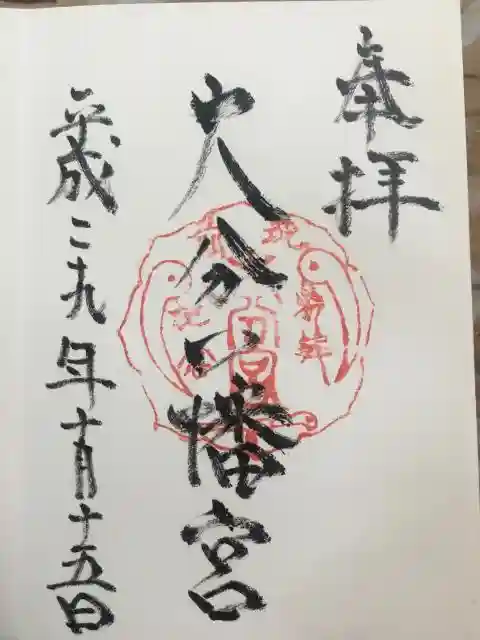 奉拝
大分八幡宮
平成二十九年十月十五日